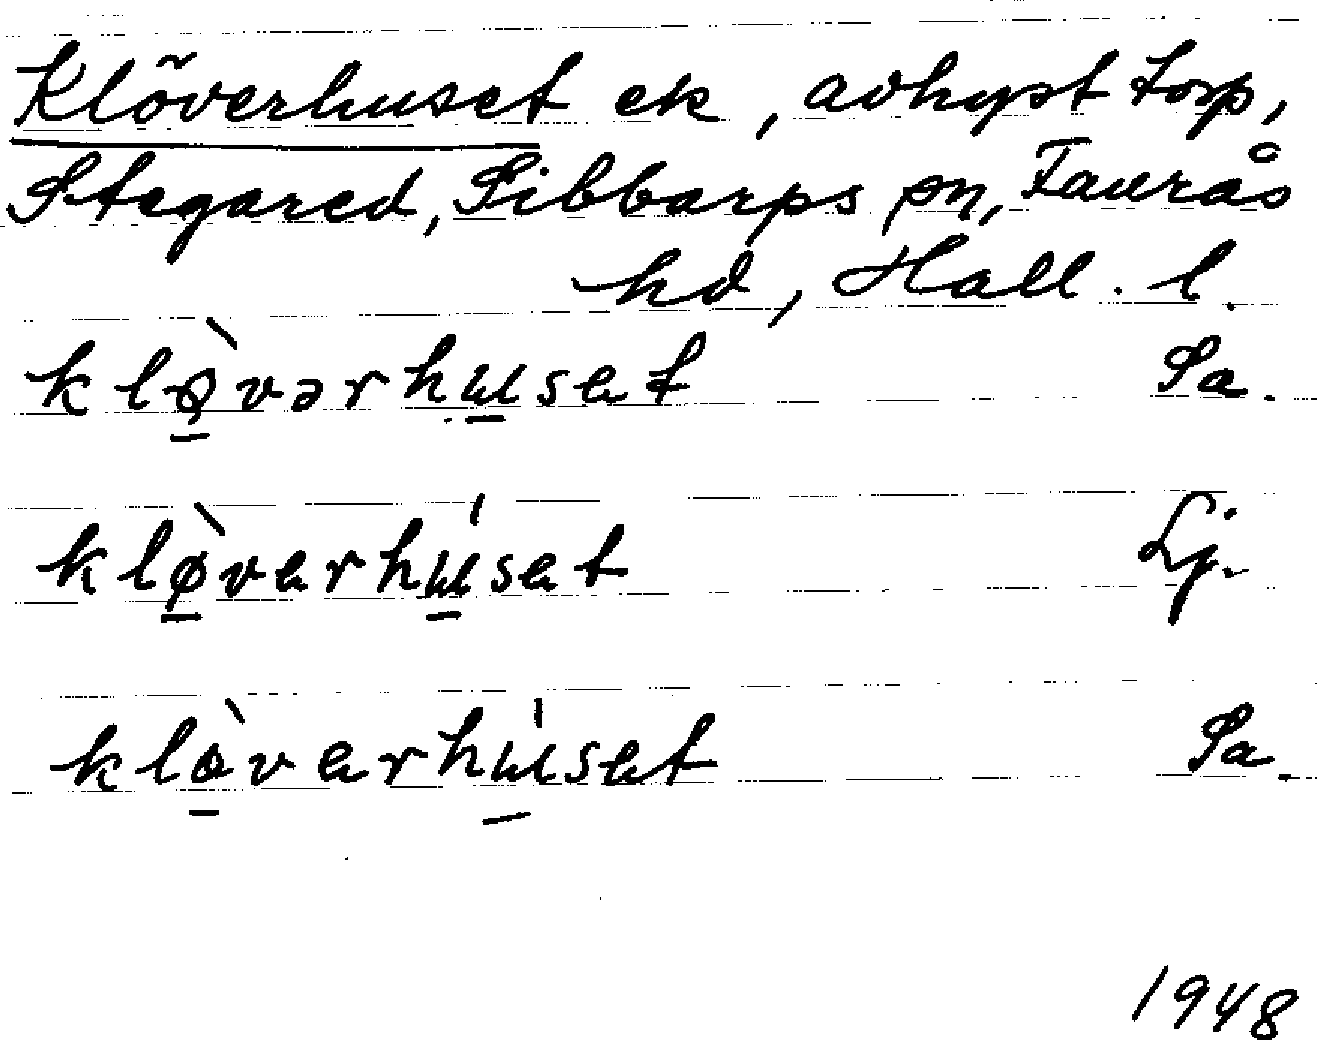 Klöverhuset ek, avhyst torp,
Stegared, Sibbarps sn, Faurås
hd, Hall. l.
klø̱̀vərhu̱set Sa.
klø̱̀verhú̱set Lj.
klò̱verhú̱set Sa.
1948